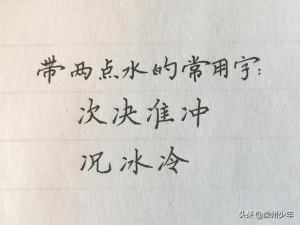 带两点水的常用字:
次决准冲
况冰冷
头条@梁州少年